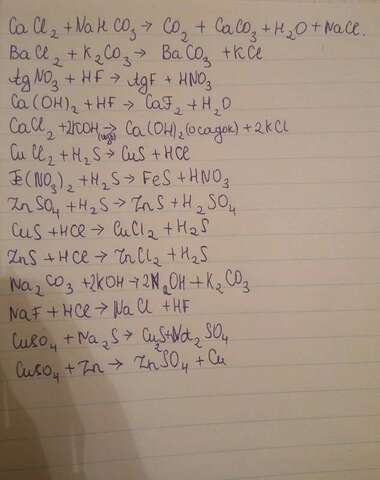 CaCl₂ + NaHCO₃ → CO₂ + CaCO₃ + H₂O + NaCl.
BaCl₂ + K₂CO₃ → BaCO₃ + KCl
AgNO₃ + HF → AgF + HNO₃
Ca(OH)₂ + HF → CaF₂ + H₂O
CaCl₂ + 2KOH → Ca(OH)₂ (осадок) + 2KCl
CuCl₂ + H₂S → CuS + HCl
Fe(NO₃)₂ + H₂S → FeS + HNO₃
ZnSO₄ + H₂S → ZnS + H₂SO₄
CuS + HCl → CuCl₂ + H₂S
ZnS + HCl → ZnCl₂ + H₂S
Na₂CO₃ + 2KOH → 2NaOH + K₂CO₃
NaF + HCl → NaCl + HF
CuSO₄ + Na₂S → Cu₂S + Na₂SO₄
CuSO₄ + Zn → ZnSO₄ + Cu